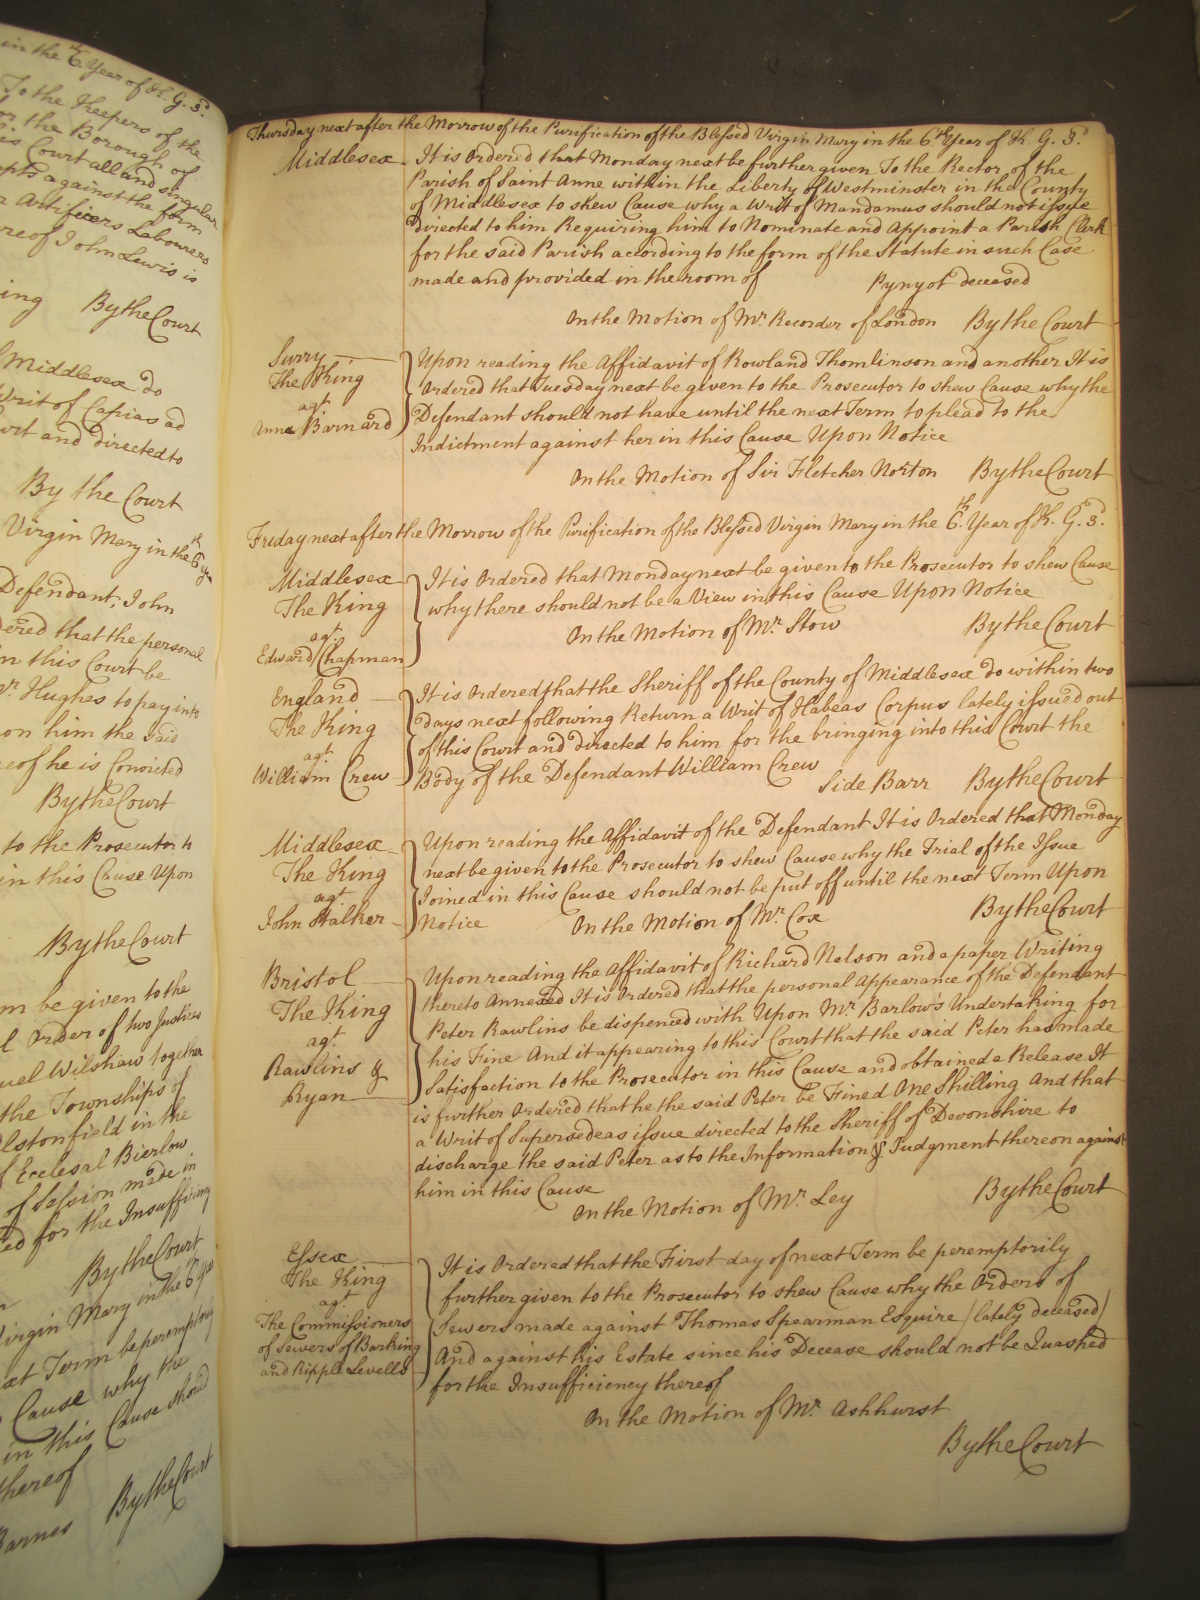 in the 6th. Year of K. G. 3d.
To the Keepers of the
or the Borough of
is Court all and singular
against the form
r Artificers Labourers
reof John Lewis is
ing By the Court
Middlesex do
Writ of Capias ad
urt and Directed to
By the Court
Virgin Mary in the 6th Ye
Defendant, John
dered that the personal
n this Court be
Mr. Hughes to pay into
on him the said
eof he is Convicted
By the Court
to the Prosecutor to
in this Cause Upon
By the Court
m be given to the
l Order of two Justices
uel Wilshaw together
the Townships of
lstonfield in the
f Ecclesal Bierlow
of Session made in
ed for the Insufficiency
By the Court
Virgin Mary in the 6th Year
xt Term be peremptorily
Cause why the
in this Cause should
thereof
Barnes By the Court
Thursday next after the Morrow of the Purification of the Blessed Virgin Mary in the 6th Year of K. G. 3d.
Middlesex It is Ordered that Monday next be further given To the Rector of the
Parish of Saint Anne within the Liberty of Westminster in the County
of Middlesex to shew Cause why a Writ of Mandamus should not issue
Directed to him Requiring him to Nominate and Appoint a Parish Clerk
for the said Parish according to the form of the Statute in such Case
made and provided in the room of Pynyot deceased
On the Motion of Mr. Recorder of London By the Court
Surry
The King
agt.
Anne Barnard
Upon reading the Affidavit of Rowland Thomlinson and another It is
Ordered that Tuesday next be given to the Prosecutor to shew Cause why the
Defendant should not have until the next Term to plead to the
Indictment against her in this Cause Upon Notice
On the Motion of Sir Fletcher Norton By the Court
Friday next after the Morrow of the Purification of the Blessed Virgin Mary in the 6th. Year of K. G. 3d.
Middlesex
The King
agt.
Edward Chapman
It is Ordered that Monday next be given to the Prosecutor to shew Cause
why there should not be a View in this Cause Upon Notice
On the Motion of Mr. Stow By the Court
England
The King
agt.
William Crew
It is Ordered that the Sheriff of the County of Middlesex do within two
days next following Return a Writ of Habeas Corpus lately issued out
of this Court and directed to him for the bringing into this Court the
Body of the Defendant William Crew
Side Barr By the Court
Middlesex
The King
agt.
John Stalker
Upon reading the Affidavit of the Defendant It is Ordered that Monday
next be given to the Prosecutor to shew Cause why the Trial of the Issue
Joined in this Cause should not be put off until the next Term Upon
Notice On the Motion of Mr. Cox By the Court
Bristol
The King
agt.
Rawlins &
Ryan
Upon reading the Affidavit of Richard Nelson and a paper Writing
thereto Annexed It is Ordered that the personal Appearance of the Defendant
Peter Rawlins be dispenced with Upon Mr. Barlow's Undertaking for
his Fine And it appearing to this Court that the said Peter has made
Satisfaction to the Prosecutor in this Cause and obtained a Release It
is further Ordered that he the said Peter be Fined One Shilling And that
a Writ of Supersedeas issue directed to the Sheriff of Devonshire to
discharge the said Peter as to the Information & Judgment thereon against
him in this Cause
On the Motion of Mr. Ley By the Court
Essex
The King
agt.
The Commissioners
of Sewers of Barking
and Ripple Levells
It is Ordered that the First day of next Term be peremptorily
further given to the Prosecutor to shew Cause why the Orders of
Sewers made against Thomas Spearman Esquire /lately deceased/
And against his Estate since his Decease should not be Quashed
for the Insufficiency thereof
On the Motion of Mr. Ashhurst
By the Court